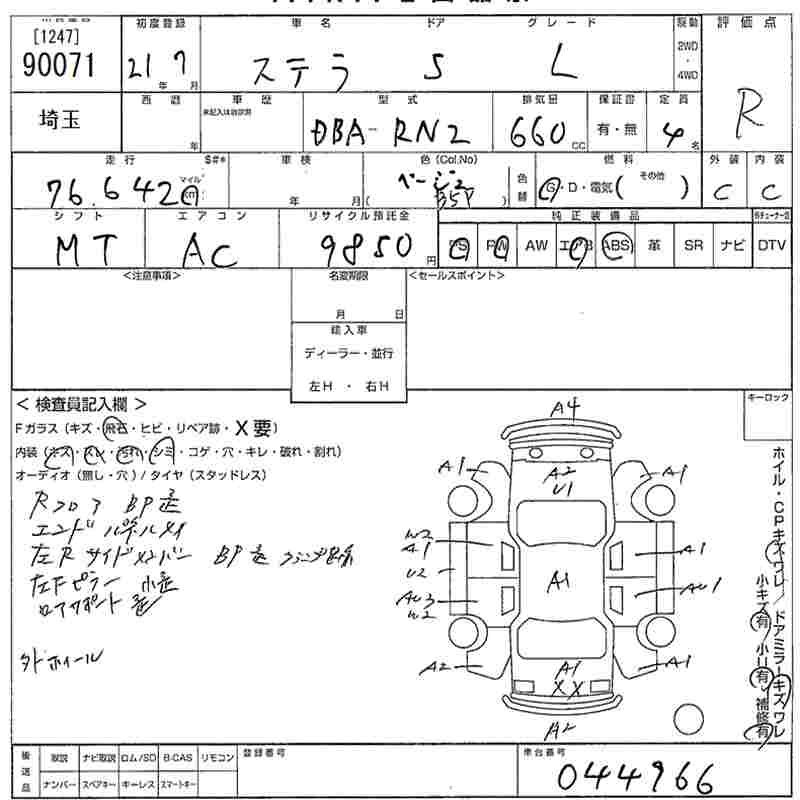 [1247]
90071
初度登録
21 7
年 月
車名
ステラ
ドア
5
グレード
L
駆動
2WD
・
4WD
評価点
R
埼玉
西暦
年
車歴
未記入は自家用
型式
DBA-RN2
排気量
660 CC
保証書
有・無
定員
4名
走行
S#*
76.642
マイル
km
車検
年 月
色(Col.No)
ベージュ
( )
色替
燃料
G・D・電気( その他 )
外装
C
内装
C
シフト
MT
エアコン
AC
リサイクル預託金
9850円
純正装備品
PS PW AW エアB ABS 革 SR ナビ DTV
<注意事項>
名変期限
月 日
輸入車
ディーラー・並行
左H ・ 右H
<セールスポイント>
< 検査員記入欄 >
Fガラス(キズ・飛石・ヒビ・リペア跡・X要)
内装(キズ・スレ・汚れ・シミ・コゲ・穴・キレ・破れ・割れ)
オーディオ(無し・穴)/タイヤ(スタッドレス)
Rフロア BP走
エンドパネルメイ
左Rサイドメンバー BP走
左Fピラー
ロアサポート
外ホイール
キーロック
ホイル・CPキズワレ/ドアミラーキズワレ
小キズ有 小U有 補修有
A4
A1
A2
U1
A1
W2
A1
U2
AU3
W2
A1
A1
AU1
A2
A1
XX
A1
A2
後送品
取説 ナビ取説 ロム/SD B-CAS リモコン
ナンバー スペアキー キーレス スマートキー
登録番号
車台番号
044966